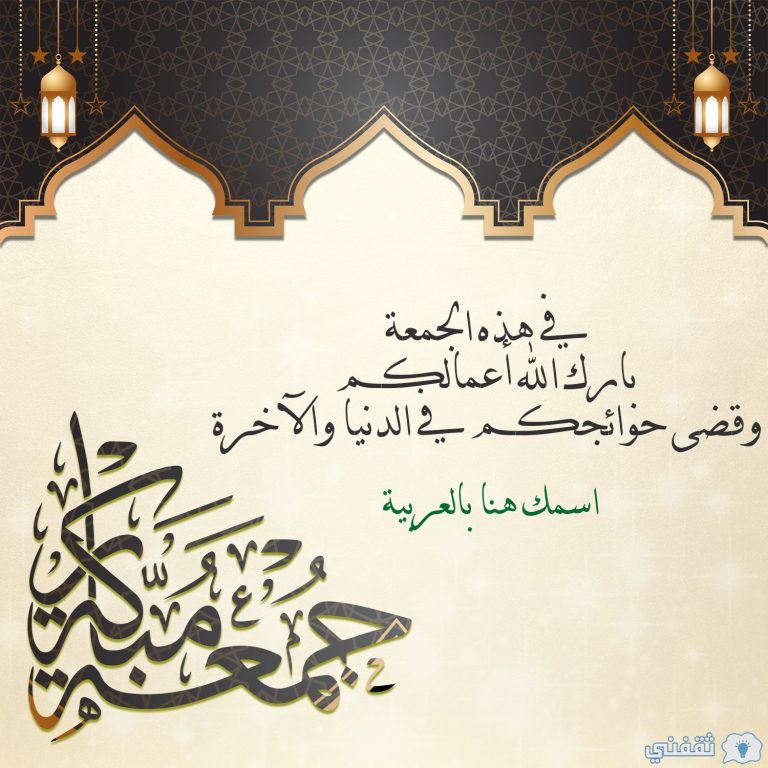 في هذه الجمعة
بارك الله أعمالكم
وقضى حوائجكم في الدنيا والآخرة
اسمك هنا بالعربية
جُمعة مُبَّاركة
ثقفني